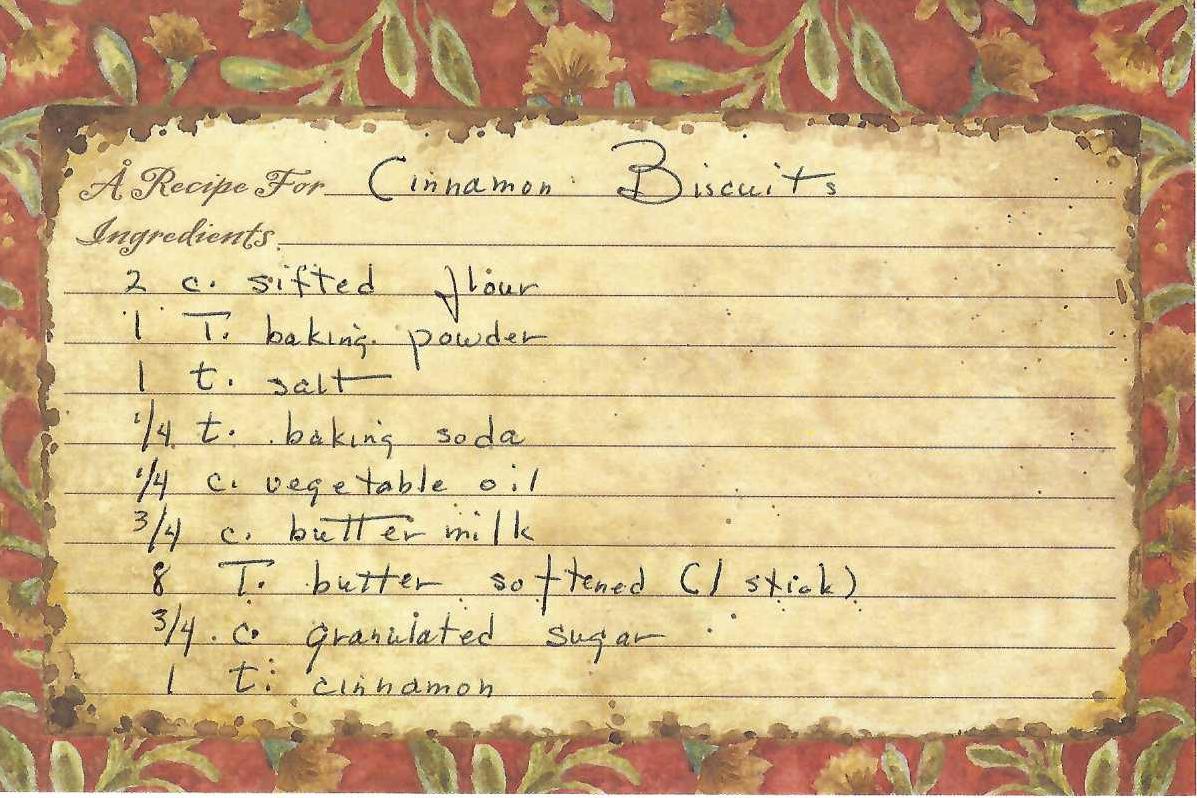 A Recipe For Cinnamon Biscuits
Ingredients
2 c. sifted flour
1 T. baking powder
1 t. salt
1/4 t. baking soda
1/4 c. vegetable oil
3/4 c. buttermilk
8 T. butter softened (1 stick)
3/4 c. granulated sugar
1 t. cinnamon